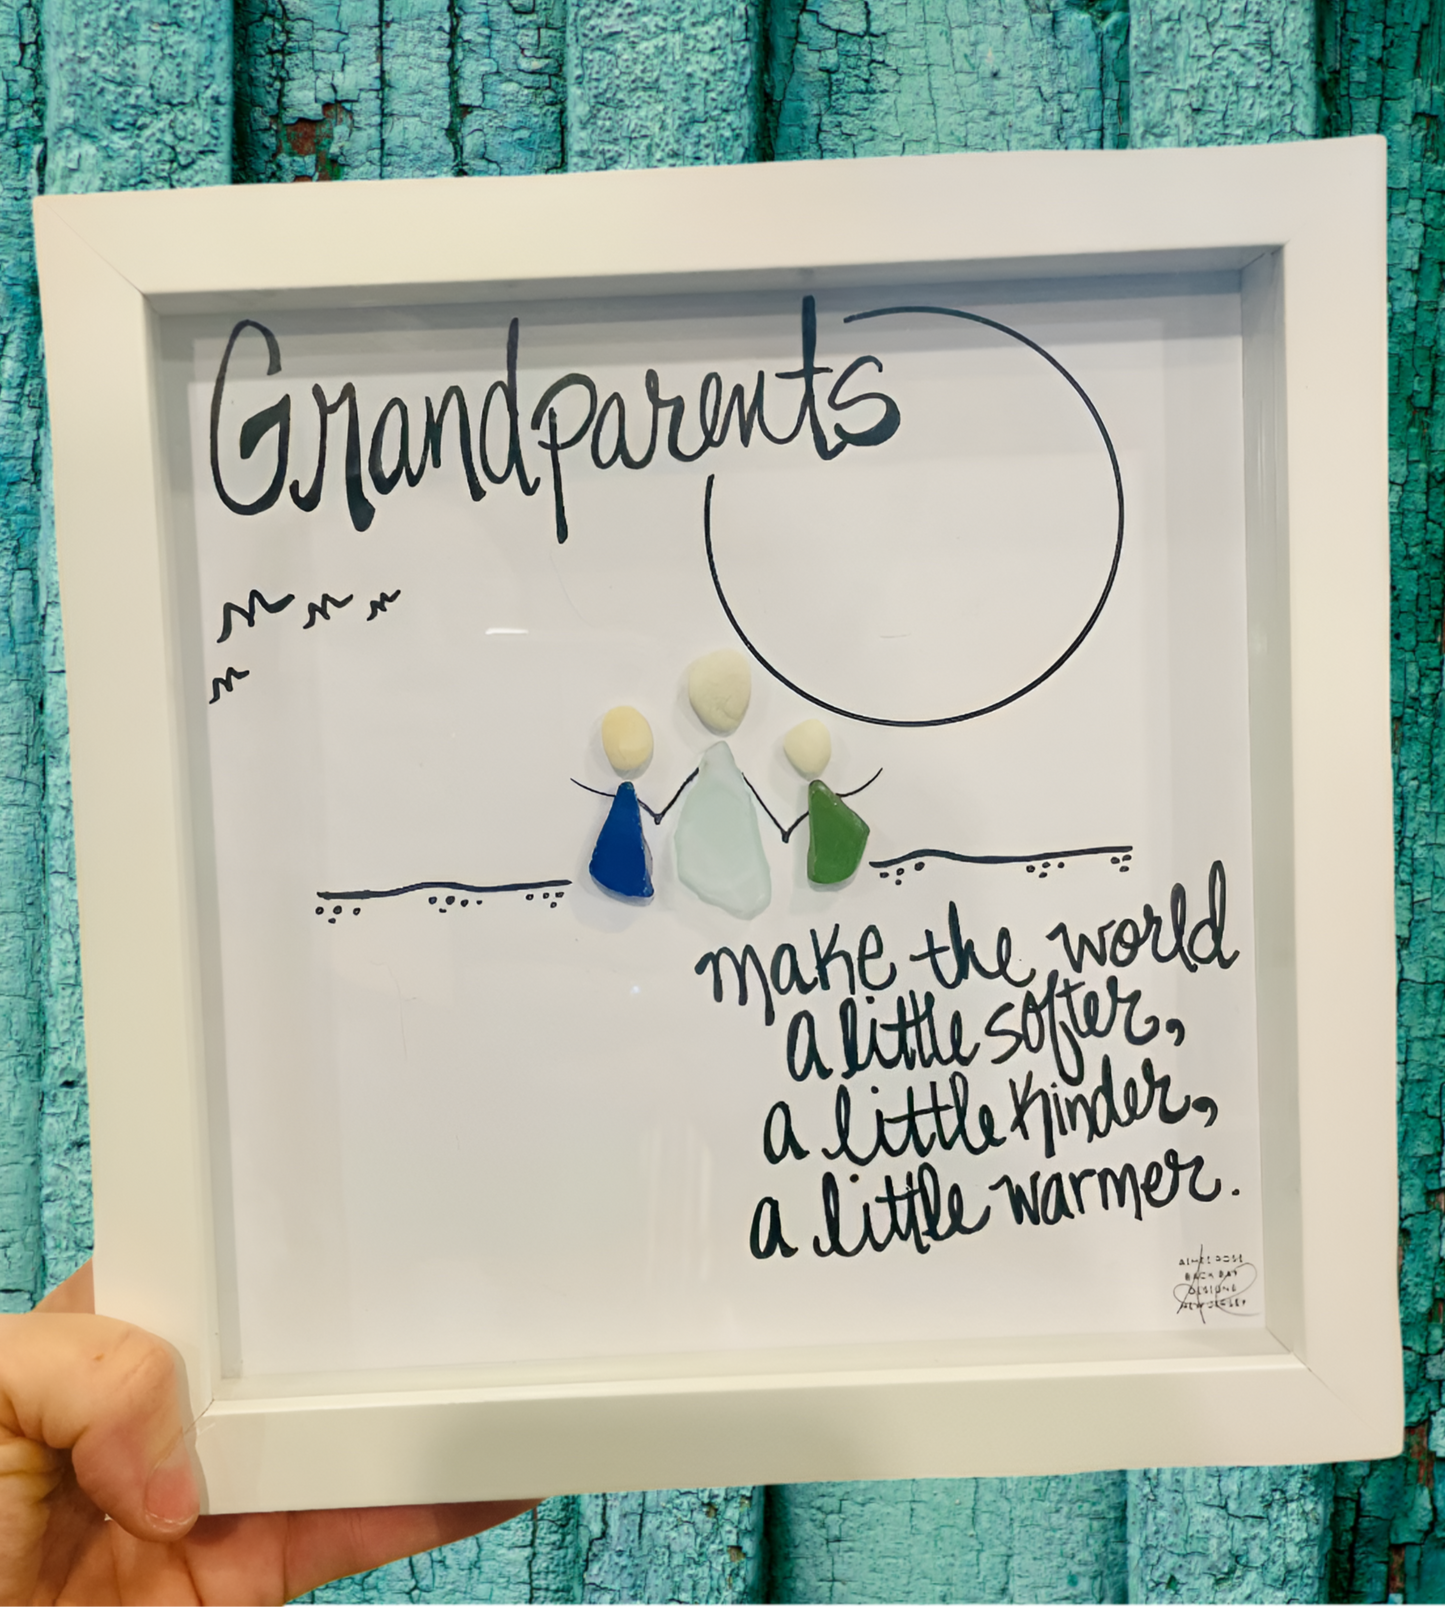 Grandparents
make the world
a little softer,
a little kinder,
a little warmer.
BACK BAY
NEW JERSEY